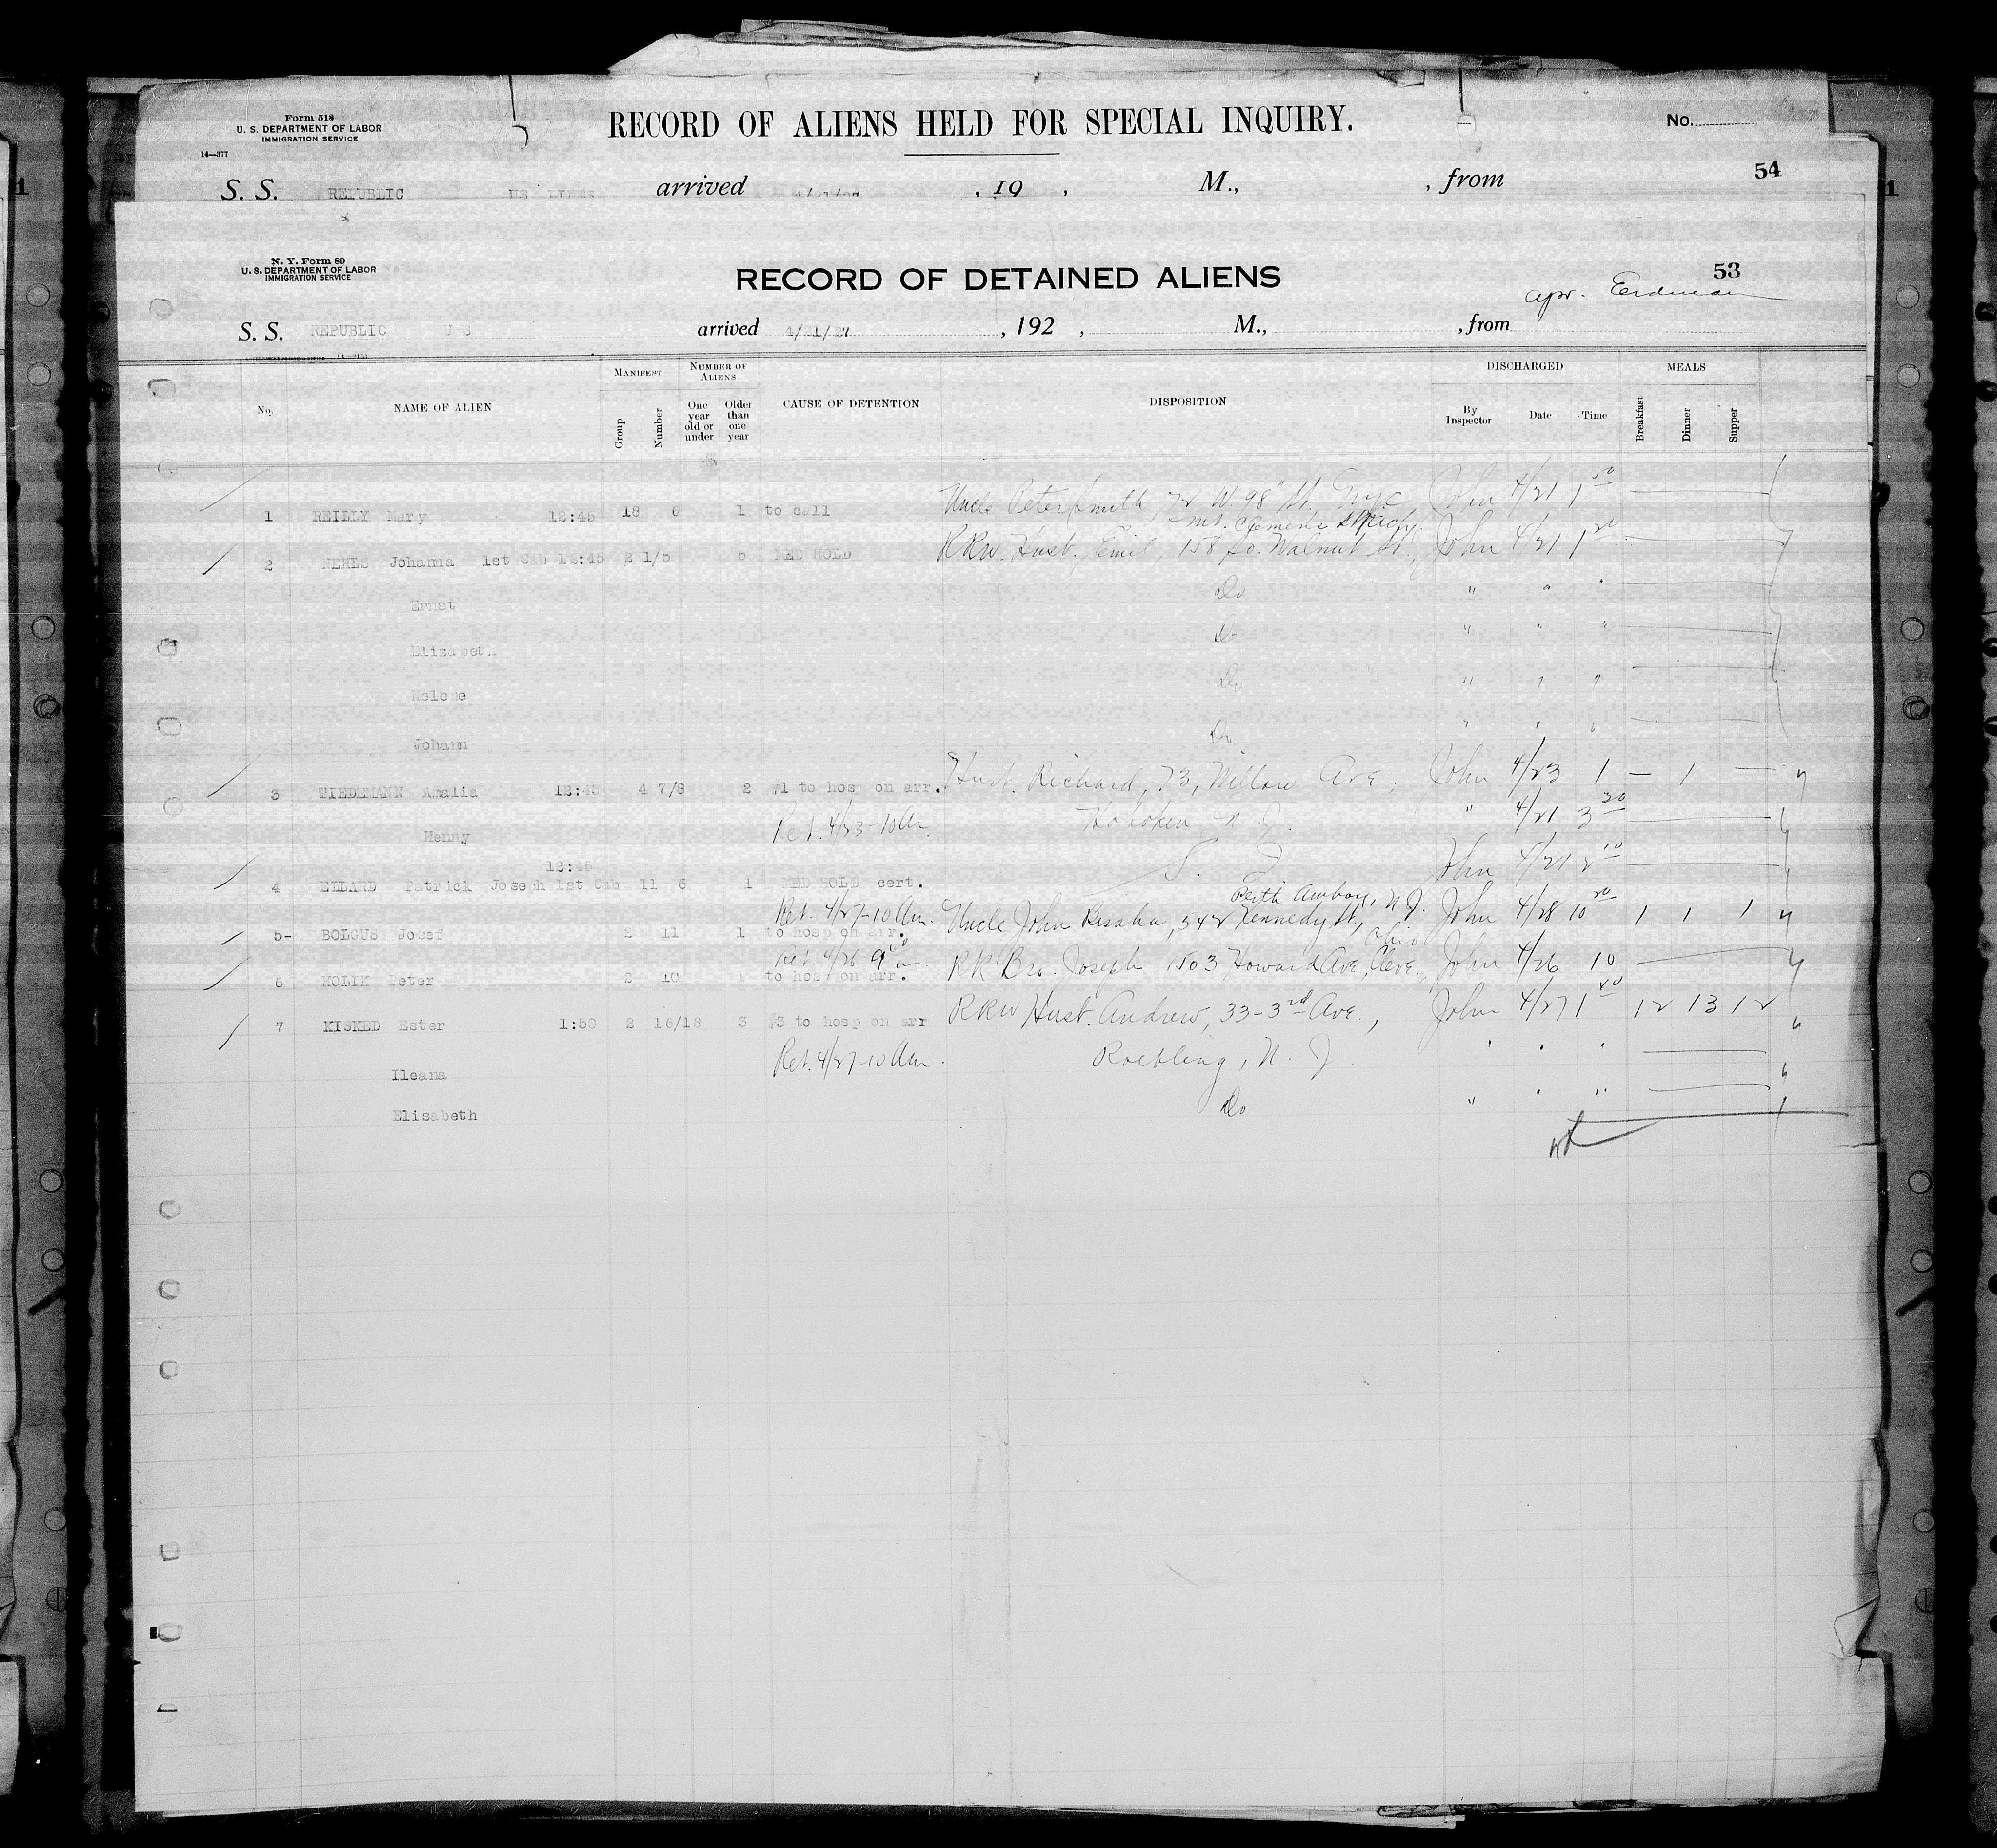 Form 518
U. S. DEPARTMENT OF LABOR
IMMIGRATION SERVICE
14—377
RECORD OF ALIENS HELD FOR SPECIAL INQUIRY.
No.
54
S. S. REPUBLIC US LINES arrived , 19 , M., , from
N. Y. Form 89
U. S. DEPARTMENT OF LABOR
IMMIGRATION SERVICE
RECORD OF DETAINED ALIENS
53
S. S. REPUBLIC U S arrived 4/21/27 , 192 , M., , from
No. NAME OF ALIEN MANIFEST Group Number NUMBER OF ALIENS One year old or under Older than one year CAUSE OF DETENTION DISPOSITION DISCHARGED By Inspector Date Time MEALS Breakfast Dinner Supper
1 REILLY Mary 12:45 18 6 1 to call Uncle Peter Smith, 72 W. 98" St. John 4/21 1 50
Mt. Clemens Mich.
2 NEHLS Johanna 1st Cab 12:45 2 1/5 5 MED HOLD RRW. Husb. Emil, 158 So. Walnut St., John 4/21 1 20
Ernst Do " " "
Elizabeth Do " " "
Helene Do " " "
Johann Do " " "
3 TIEDEMANN Amalia 12:45 4 7/8 2 #1 to hosp on arr. Husb. Richard, 73, Willow Ave, John 4/23 1 — 1 —
Henny Ret. 4/23-10 Am. Hoboken, N. J. " 4/21 3 30
12:45
4 ELLARD Patrick Joseph 1st Cab 11 6 1 MED HOLD cert. S. I John 4/21 2 10
Perth Amboy, N. J.
Ret. 4/27-10 Am.
5- BOLGUS Josef 2 11 1 to hosp on arr. Uncle John Bisaha, 542 Kennedy St, John 4/28 10 20 1 1 1
Ohio
Ret. 4/26 - 9 00 a.
6 HOLIK Peter 2 10 1 to hosp on arr. RR Bro. Joseph 1503 Howard Ave, Cleve., John 4/26 10
7 KISKED Ester 1:50 2 16/18 3 #3 to hosp on arr RRW Husb. Andrew, 33-3rd Ave., John 4/27 1 40 12 13 12
Ileana Ret. 4/27-10 Am. Roebling, N. J. " " "
Elisabeth Do " " "